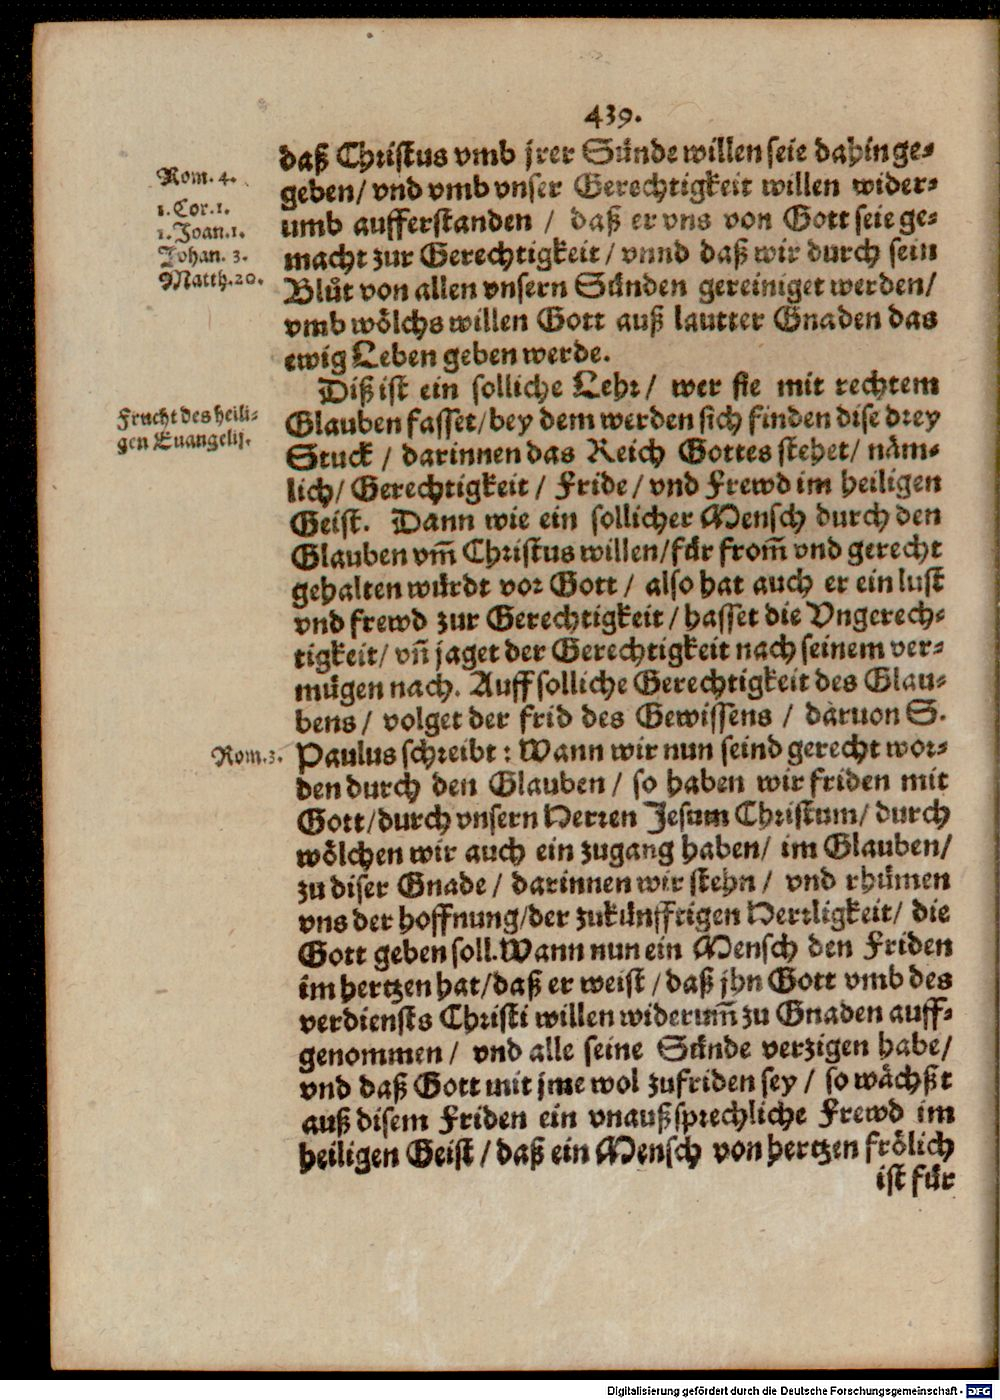 439.
daß Christus vmb jrer Sünde willen seie dahin ge-
geben/ vnd vmb vnser Gerechtigkeit willen wider-
umb aufferstanden / daß er vns von Gott seie ge-
macht zur Gerechtigkeit / vnnd daß wir durch sein
Blůt von allen vnsern Sünden gereiniget werden/
vmb wölchs willen Gott auß lautter Gnaden das
ewig Leben geben werde.
Rom. 4.
1. Cor. 1.
1. Joan. 1.
Johan. 3.
Matth. 20.
Diß ist ein solliche Lehr / wer sie mit rechtem
Glauben fasset/ bey dem werden sich finden dise drey
Stuck / darinnen das Reich Gottes stehet/ näm-
lich/ Gerechtigkeit / Fride / vnd Frewd im heiligen
Geist. Dann wie ein sollicher Mensch durch den
Glauben vm̃ Christus willen/ für from̃ vnd gerecht
gehalten würdt vor Gott / also hat auch er ein lust
vnd frewd zur Gerechtigkeit / hasset die Vngerech-
tigkeit/ vñ jaget der Gerechtigkeit nach seinem ver-
mügen nach. Auff solliche Gerechtigkeit des Glau-
bens / volget der frid des Gewissens / daruon S.
Paulus schreibt : Wann wir nun seind gerecht wor-
den durch den Glauben / so haben wir friden mit
Gott/ durch vnsern Herren Jesum Christum/ durch
wölchen wir auch ein zugang haben/ im Glauben/
zu diser Gnade / darinnen wir stehn / vnd rhümen
vns der hoffnung/ der zukünfftigen Herrligkeit/ die
Gott geben soll. Wann nun ein Mensch den Friden
im hertzen hat/ daß er weist / daß jhn Gott vmb des
verdiensts Christi willen widerum̃ zu Gnaden auff-
genommen / vnd alle seine Sünde verzigen habe/
vnd daß Gott mit jme wol zufriden sey / so wächßt
auß disem Friden ein vnaußsprechliche Frewd im
heiligen Geist / daß ein Mensch von hertzen frölich
ist für
Frucht des heili-
gen Euangelij.
Rom. 3.
Digitalisierung gefördert durch die Deutsche Forschungsgemeinschaft - DFG